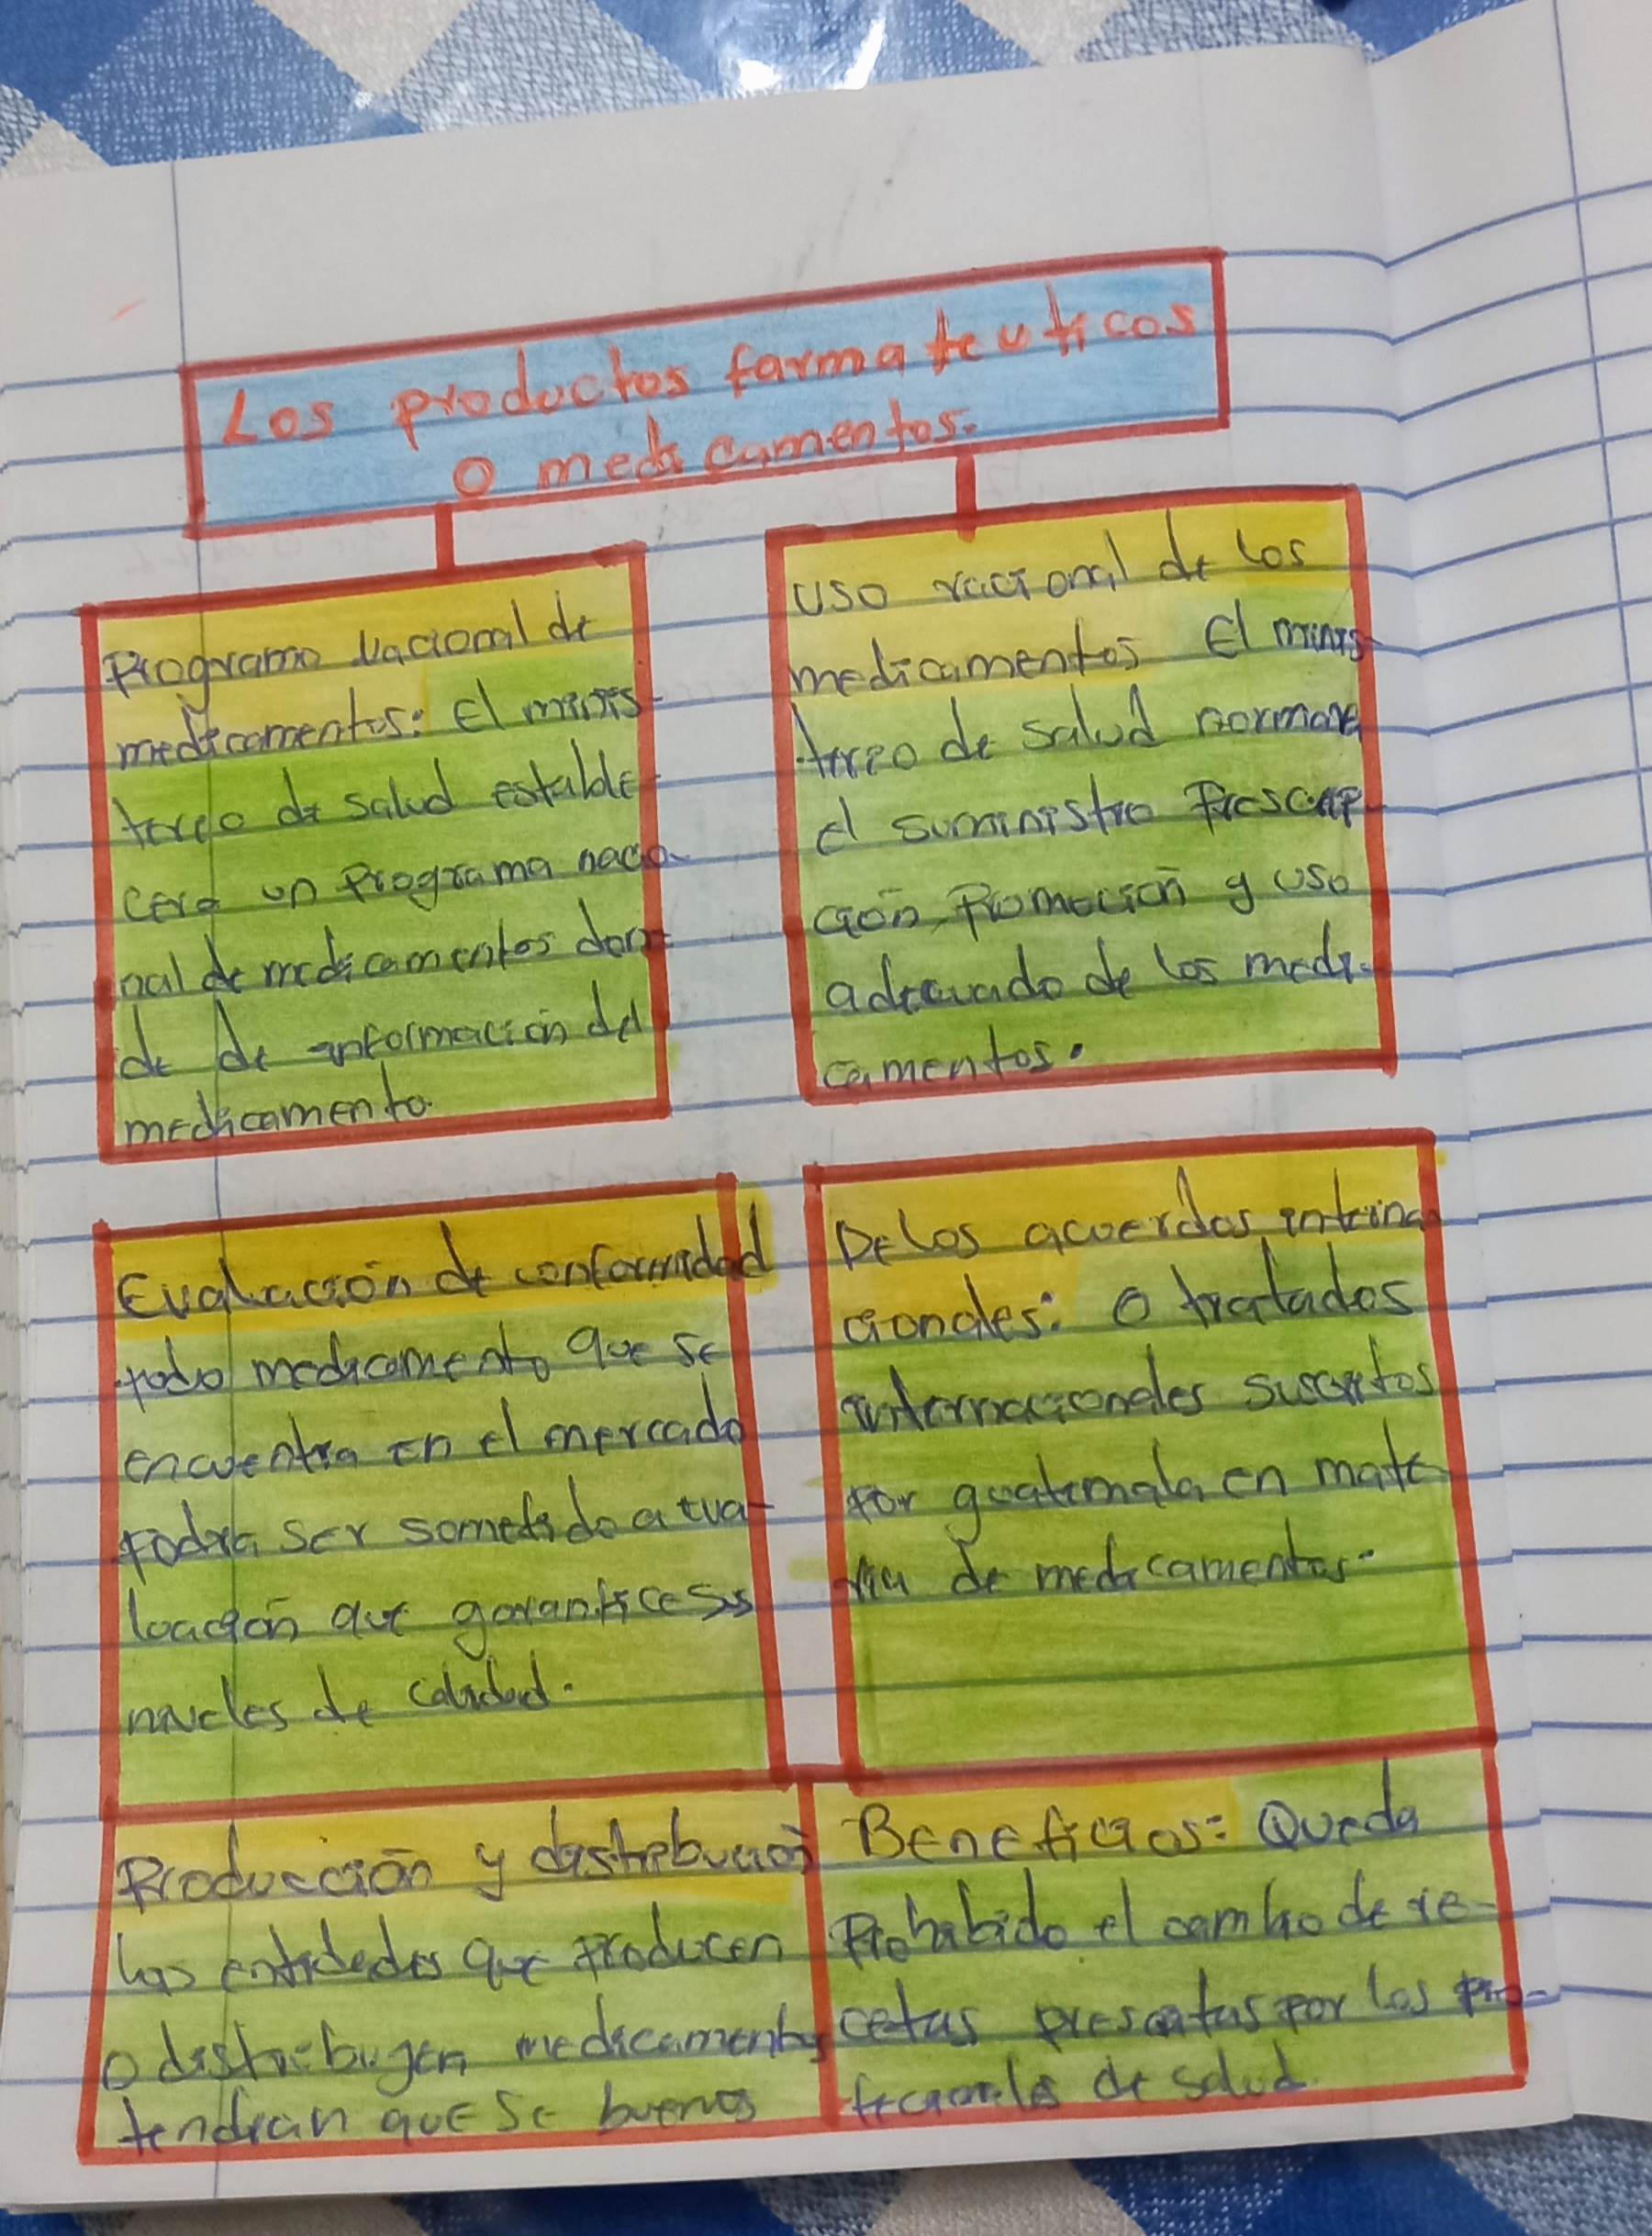 Los productos farmateuticos
o medicamentos.
Programa Nacional de
medicamentos: El minis-
terio de salud estable-
cera un Programa nacio-
nal de medicamentos don-
de de informacion del
medicamento.
USO racional de los
medicamentos El minis-
terio de salud normara
el suministro Prescrip-
ción, Promocion y uso
adecuado de los medi-
camentos.
Evaluación de conformidad
todo medicamento que se
encuentra en el mercado
Podra ser sometido a eva-
luación que garantice sus
niveles de calidad.
De los acuerdos interna-
cionales: O tratados
internacionales suscritos
Por guatemala en mate-
ria de medicamentos.
Producción y distribución
Las entidades que Producen
o distribuyen medicamentos
tendran que se buenos
Beneficios: Queda
Prohibido el cambio de re-
cetas prescritas por los pro-
fecionales de salud.